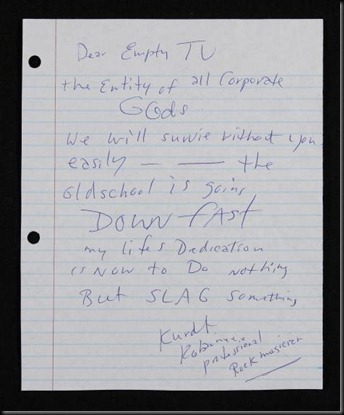 Dear Empty TV
the Entity of all Corporate
GODS
we will suvive without you
easily — — the
oldschool is going
DOWN FAST
my lifes Dedication
is Now to Do nothing
But SLAG something
Kurdt
professional
Rock musician